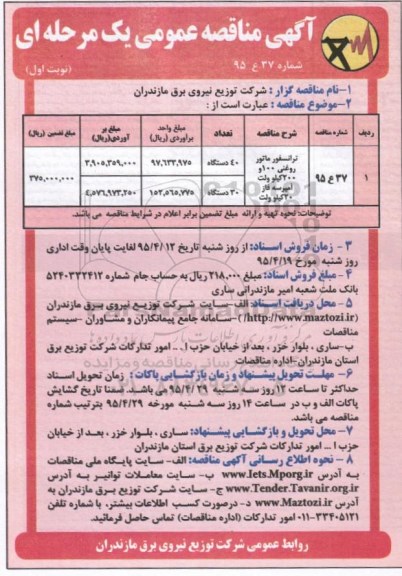 آگهی مناقصه عمومی یک مرحله ای
شماره ۳۷ ع ۹۵
(نوبت اول)
۱-نام مناقصه گزار : شرکت توزیع نیروی برق مازندران
۲-موضوع مناقصه : عبارت است از :
ردیف شماره مناقصه شرح مناقصه تعداد مبلغ واحد برآوردی (ریال) مبلغ بر آوردی(ریال) مبلغ تضمین (ریال)
۱ ۳۷ ع ۹۵ ترانسفور ماتور روغنی ۱۰۰و ۲۰۰کیلو ولت آمپرسه فاز ۲۰کیلو ولت
۴۰ دستگاه ۹۷,۶۳۳,۹۷۵ ۳,۹۰۵,۳۵۹,۰۰۰ ۳۷۵,۰۰۰,۰۰۰
۳۰ دستگاه ۱۵۲,۵۶۵,۷۷۵ ۴,۵۷۶,۹۷۳,۲۵۰
توضیحات: نحوه تهیه و ارائه مبلغ تضمین برابر اعلام در شرایط مناقصه می باشند.
۳- زمان فروش اسناد: از روز شنبه تاریخ ۹۵/۴/۱۲ لغایت پایان وقت اداری
روز شنبه مورخ ۹۵/۴/۱۹
۴- مبلغ فروش اسناد: مبلغ ۲۱۸,۰۰۰ ریال به حساب جام شماره ۵۲۴۰۳۳۲۴۱۲
بانک ملت شعبه امیر مازندرانی ساری
۵- محل دریافت اسناد: الف- سایت شرکت توزیع نیروی برق مازندران
(http://www.maztozi.ir/) -سامانه جامع پیمانکاران و مشاوران -سیستم
مناقصات
ب-ساری ، بلوار خزر ، بعد از خیابان حزب ا... امور تدارکات شرکت توزیع برق
استان مازندران-اداره مناقصات
۶- مهلت تحویل پیشنهاد و زمان بازگشایی پاکات : زمان تحویل اسناد
حداکثر تا ساعت ۱۲روز سه شنبه ۹۵/۴/۲۹ می باشد. ضمنا تاریخ گشایش
پاکات الف و ب در ساعت ۱۴ روز سه شنبه مورخه ۹۵/۴/۲۹ بترتیب شماره
مناقصه می باشد.
۷- محل تحویل و بازگشایی پیشنهاد: ساری ، بلوار خزر ، بعد از خیابان
حزب ا... امور تدارکات شرکت توزیع برق استان مازندران
۸ - نحوه اطلاع رسانی آگهی مناقصه: الف- سایت پایگاه ملی مناقصات
به آدرس www.Iets.Mporg.ir ب- سایت معاملات توانیر به آدرس
www.Tender.Tavanir.org.ir ج- سایت شرکت توزیع برق مازندران به
آدرس www.Maztozi.ir د- درصورت کسب اطلاعات بیشتر، با شماره تلفن
۰۱۱-۳۳۴۰۵۱۲۱ امور تدارکات (اداره مناقصات) تماس حاصل فرمائید.
روابط عمومی شرکت توزیع نیروی برق مازندران